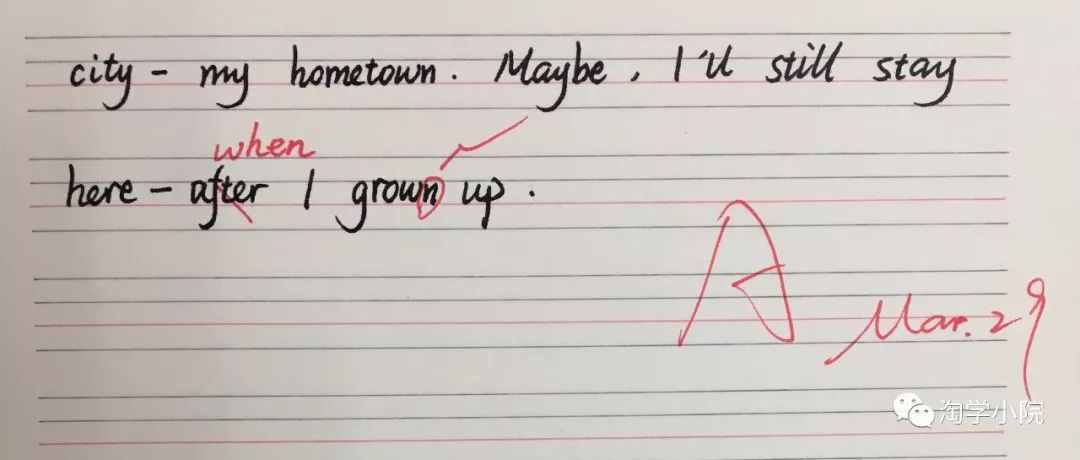 city - my hometown. Maybe, I'll still stay
when
here - after I grown up.
A
Mar. 29
淘学小院